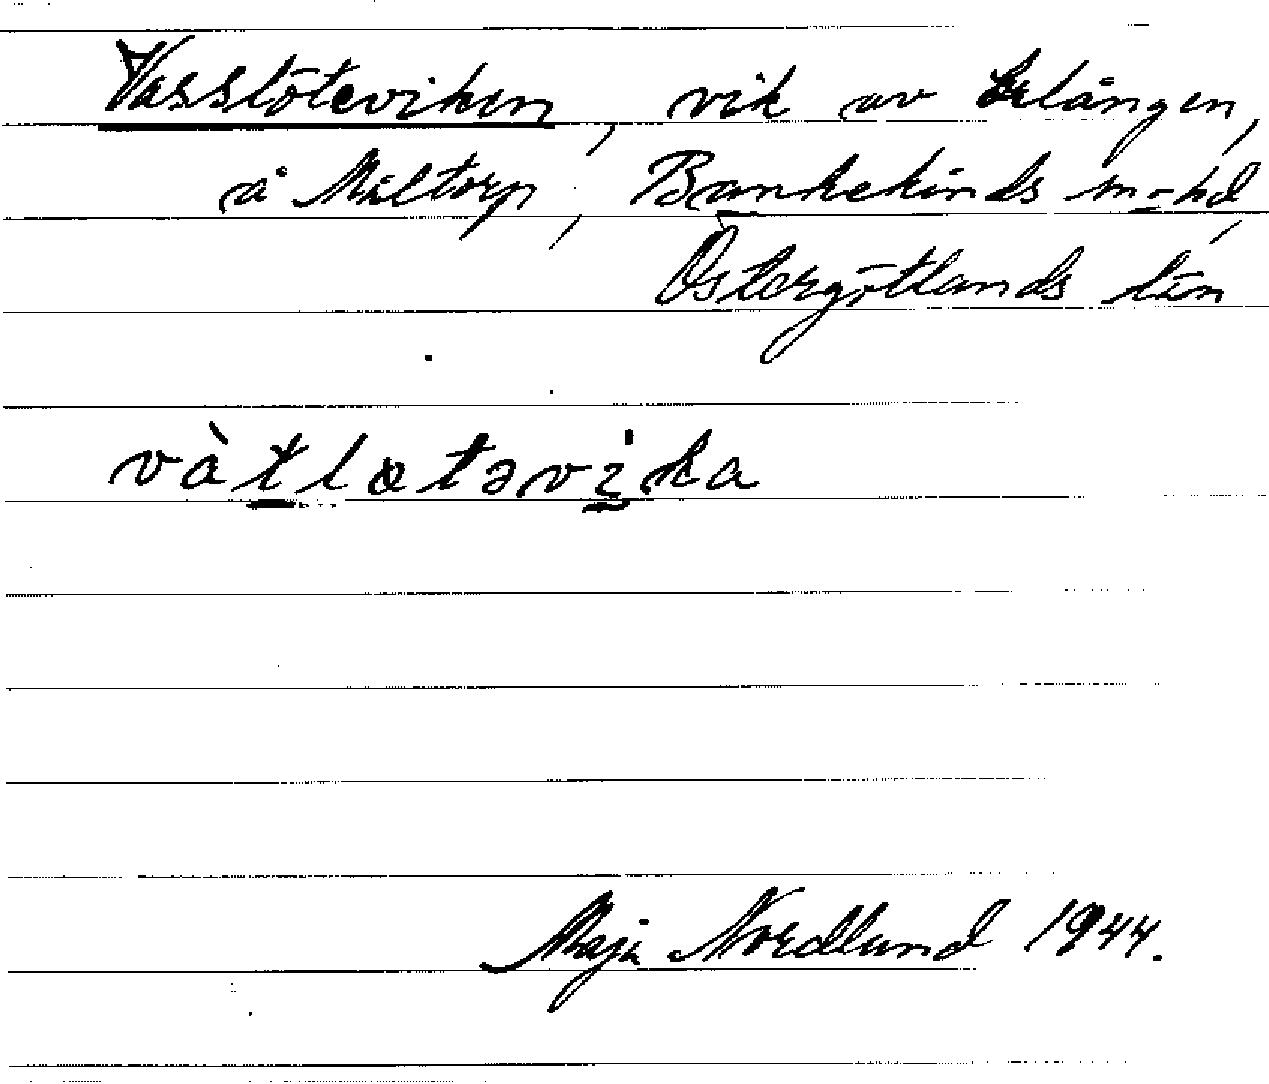 Vasslöteviken, vik av Erlången,
å Måltorp, Bankekinds sn o hd,
Östergötlands län
vàtløtəvika
Maja Nordlund 1944.